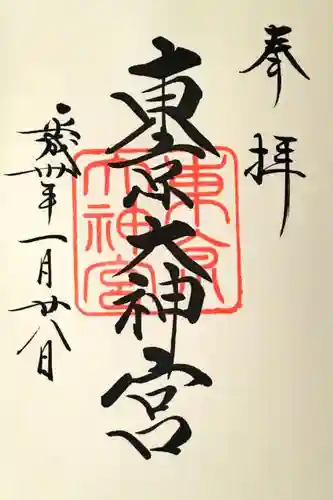 奉拝
東京大神宮
平成卅年一月廿八日
東京大神宮